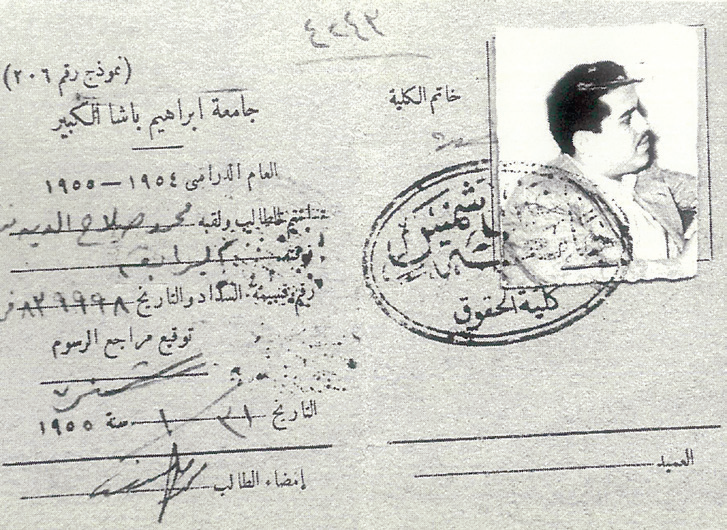 ٤٢ـ٤٣
(نموذج رقم ٢٠٦)
جامعة ابراهيم باشا الكبير
العام الدراسى ١٩٥٤ — ١٩٥٥
الطالب ولقبه محمود صلاح الدين
رقم قسيمة السداد والتاريخ ٨٢٩٩٩٨
توقيع مراجع الرسوم
التاريخ ٣١ ١ سنة ١٩٥٥
إمضاء الطالب
خاتم الكلية
شمس
كلية الحقوق
العميد